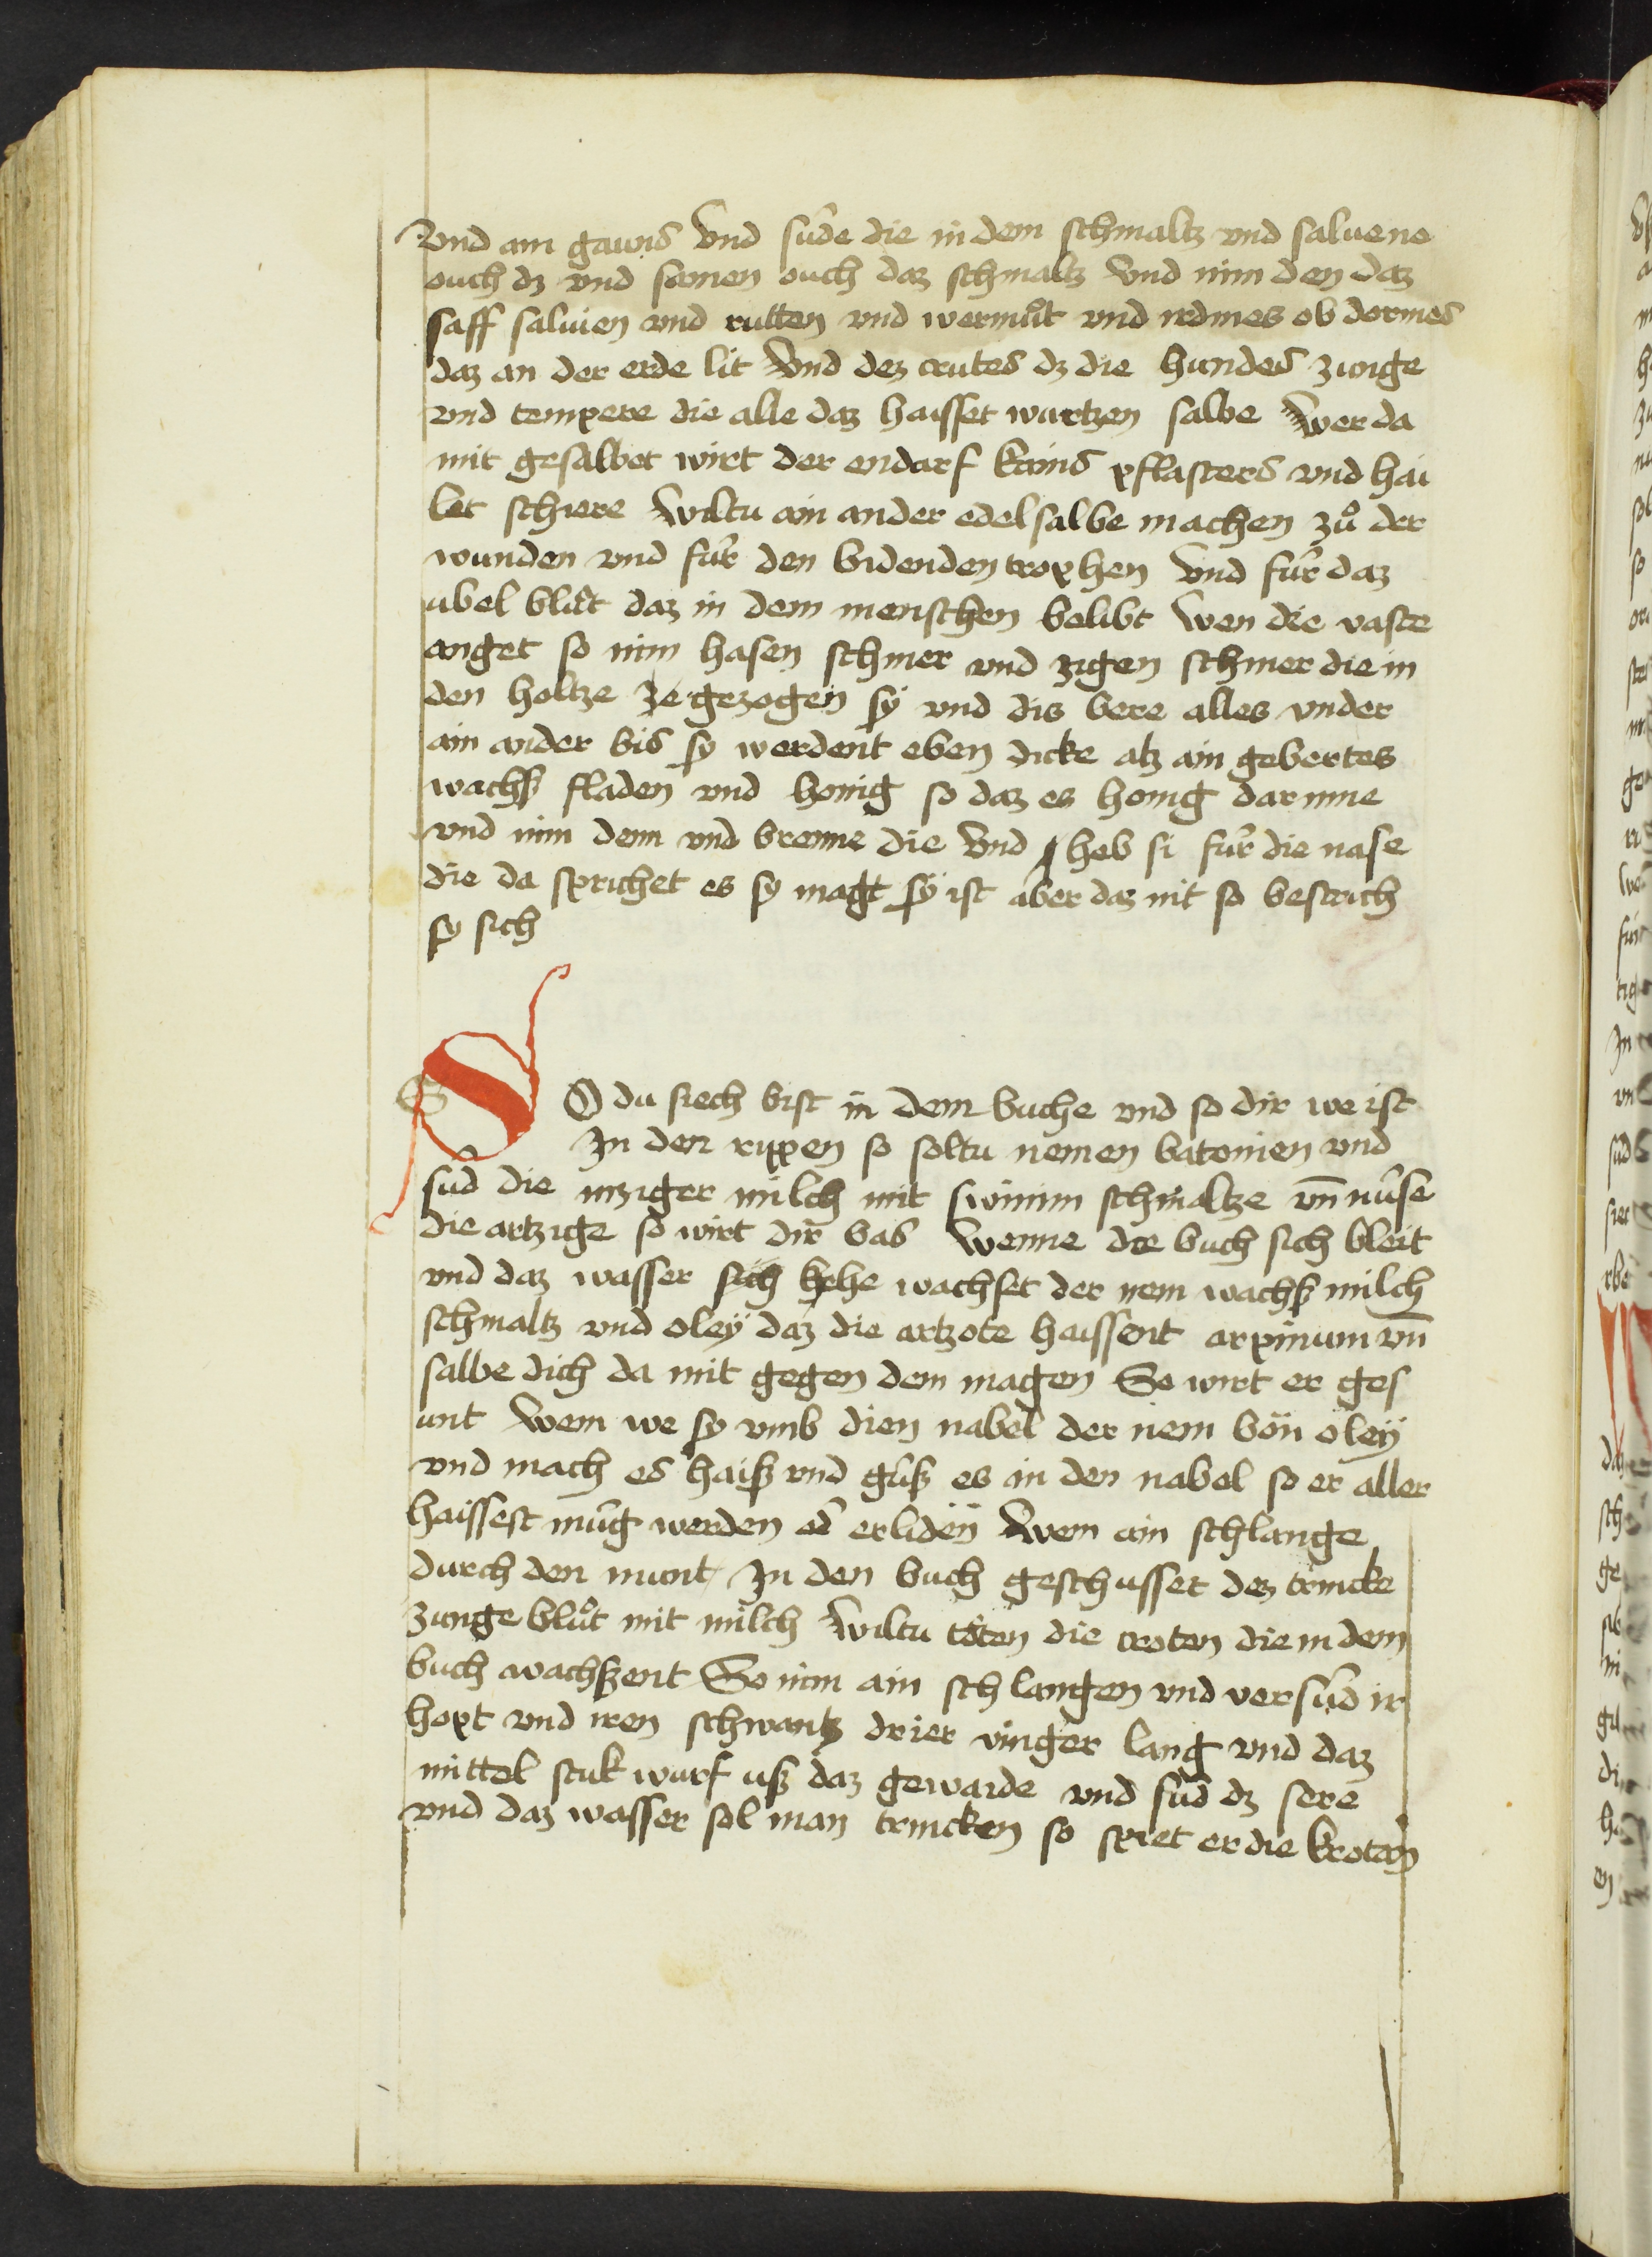 Vnd am gauns Vnd sûde die in dem schmaltz vnd saluene
ouch dz vnd somen ouch daz schmaltz Vnd nim den daz
saff saluien vnd rutten vnd wermůt vnd irdmes ob dormes
daz an der erde lit Vnd dez crutes dz die hundes zunge
vnd tempere die alle daz haisset wurtzen salbe wer da
mit gesalbet wirt der endarf kains pflasters vnd hai
let schiere wiltu ain ander edel salbe machen zů der
wunden vnd fúr den bidenden trophen Vnd fúr daz
ubel blůt daz in dem menschen belibt wen die vaste
anget so nim hasen schmer vnd zigen schmer die in
den holtze ze gezogen sÿ vnd dis bere alles vnder
ain ander bis sy werdent eben dicke alz ain gebertes
wachß fladen vnd honig so daz es honig dar inne
vnd nim denn vnd brenne die Vnd heb si fúr die nase
die da sprichet es sy magt sÿ ist aber daz nit so bestrich
sy sich
S O du siech bist in dem buche vnd so dir we ist
In den rippen so soltu nemen batonien vnd
súd die inziger milch mit swinim schmaltze vn̄ núse
die artzige so wirt dir bas wenne dre buch sich bleit
vnd daz wasser sich hche wachset der nem wachß milch
schmaltz vnd oleÿ daz die artzote haissent arpinum vn̄
salbe dich da mit gegen dem magen So wirt er ges
unt wem we sy vmb dien nabel der nem bön oleÿ
vnd mach es haiß vnd gúß es in den nabel so er aller
haissest múg werden od erliden wem ain schlange
durch den munt In den buch geschusset dez trincke
zunge blůt mit milch wiltu töten die croten die in dem
buch wachßent So nim ain schlangen vnd versúd ir
hopt vnd iren schwantz drier vinger lang vnd daz
mittel stuk wurf uß daz gewaide vnd súd dz sere
vnd daz wasser sol man trincken so spiet er die kroten